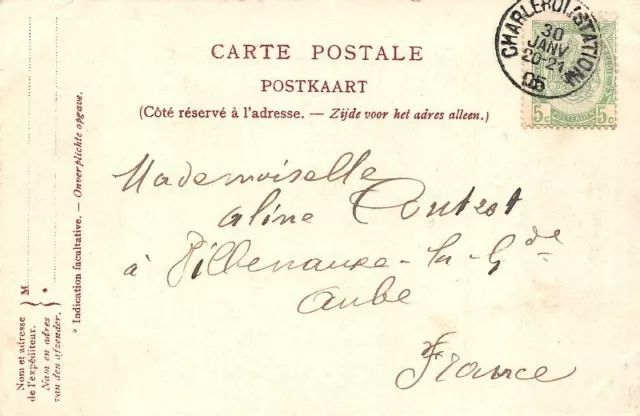 CARTE POSTALE
POSTKAART
(Côté réservé à l'adresse. — Zijde voor het adres alleen.)
CHARLEROI (STATION)
30
JANV
20-21
05
5c 5c
Mademoiselle
Aline
à Villenauxe-la-Gde
Aube
France
* Indication facultative. — Onverplichte opgave.
M.
*
Nom et adresse
de l'expéditeur.
Nam en adres
van den afzender.